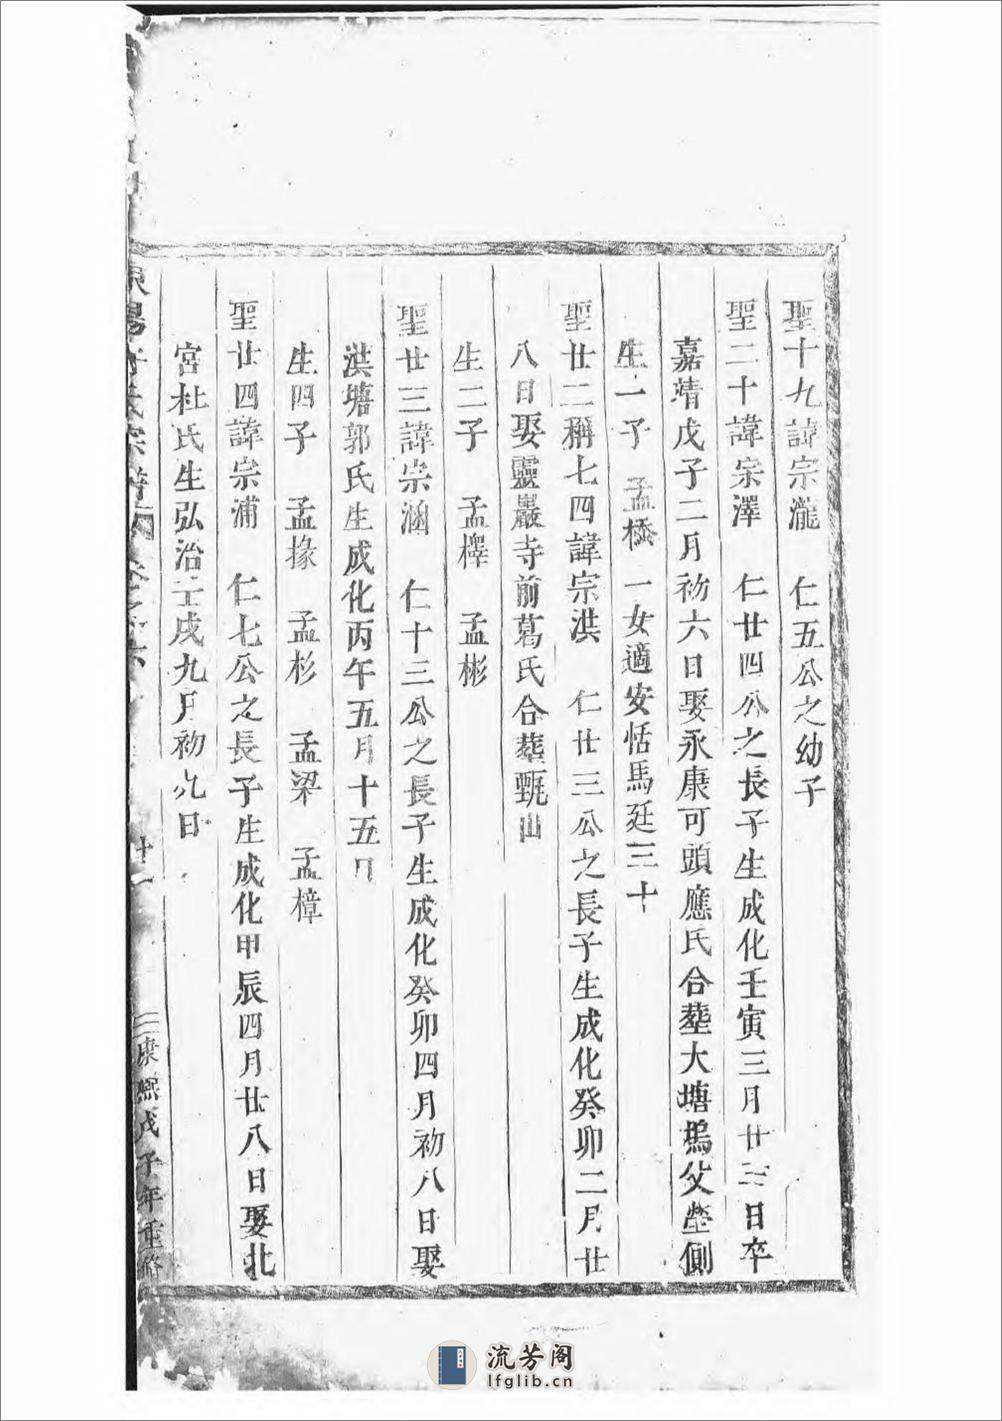 聖十九諱宗瀧　仁五公之幼子
聖二十諱宗澤　仁廿四公之長子生成化壬寅三月廿三日卒
嘉靖戊子二月初六日娶永康可頭應氏合塟大塘塢父塋側
生一子　孟橋　一女適安恬馬廷三十
聖廿二稱七四諱宗洪　仁廿三公之長子生成化癸卯二月廿
八日娶靈巖寺前葛氏合塟甄山
生二子　孟檡　孟彬
聖廿三諱宗涵　仁十三公之長子生成化癸卯四月初八日娶
洪塘郭氏生成化丙午五月十五日
生四子　孟掾　孟杉　孟梁　孟樟
聖廿四諱宗浦　仁七公之長子生成化甲辰四月廿八日娶北
宮杜氏生弘治壬戌九月初九日
陽　氏宗譜　卷之　十一　康熙戊子年重脩
流芳阁
lfglib.cn